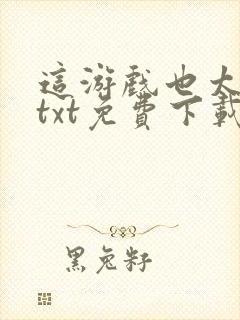 這游戲也太
txt免費下載
黑兔籽